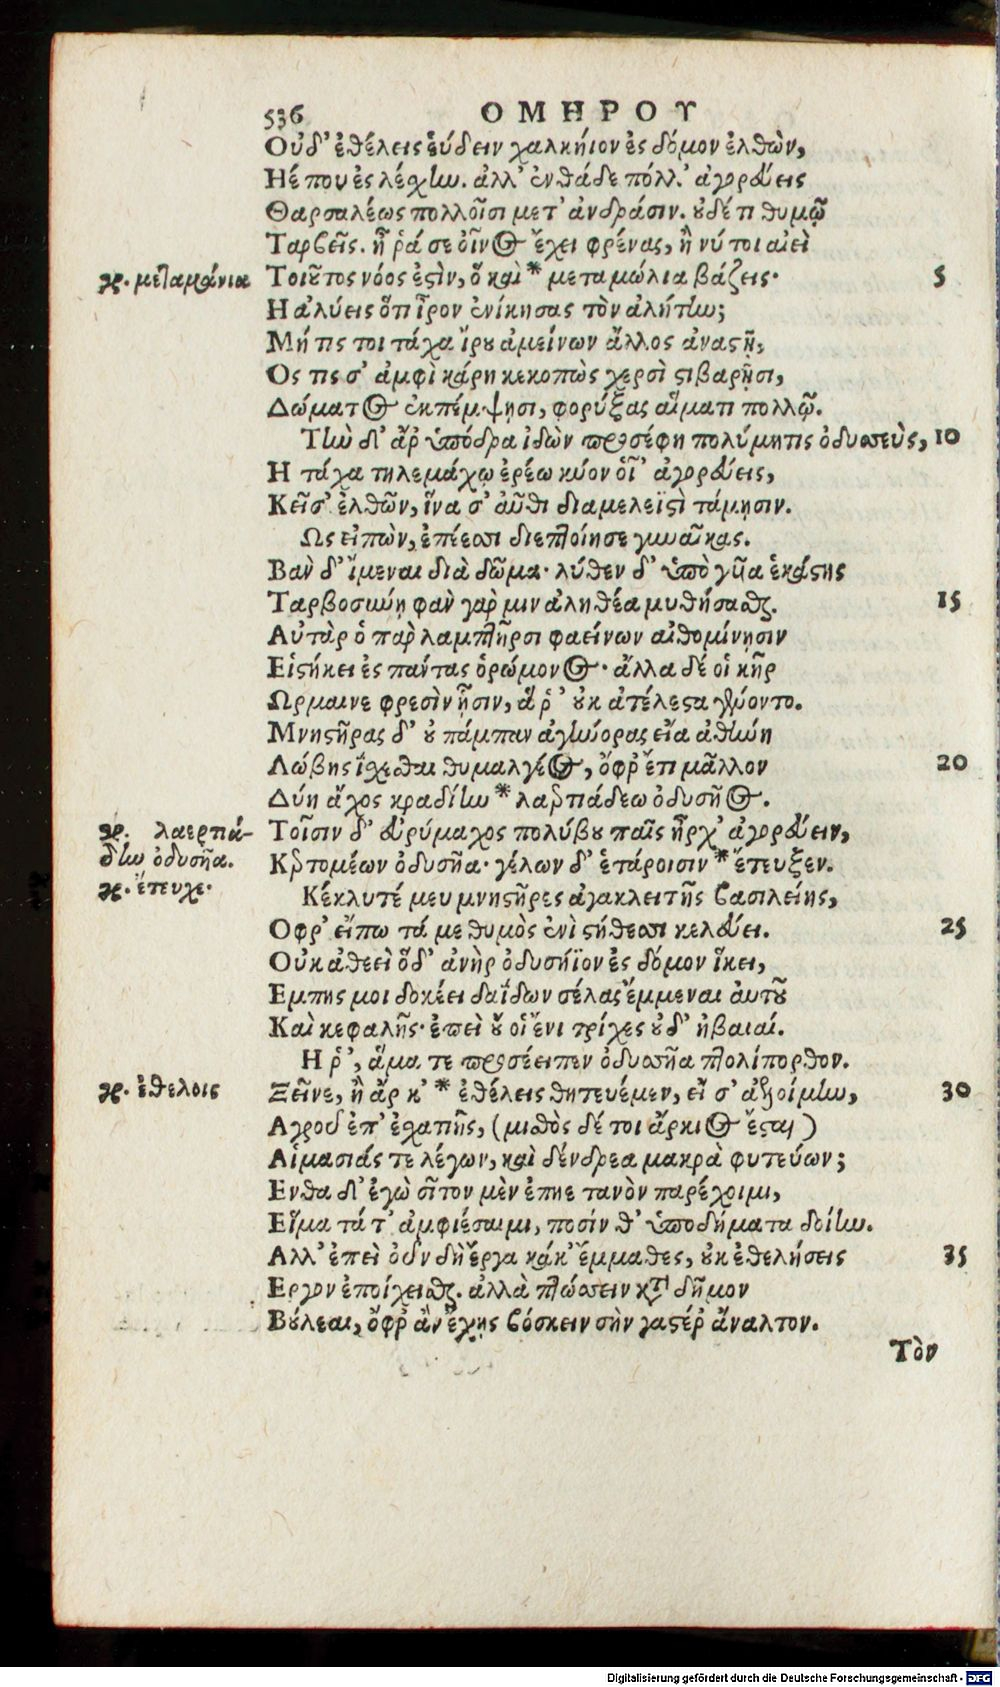 536 ΟΜΗΡΟΥ
Οὐδ' ἐθέλεις εὕδειν χαλκήιον ἐς δόμον ἐλθὼν,
Ηέ που ἐς λέσχην. ἀλλ' ἐνθάδε πόλλ' ἀγορεύεις
Θαρσαλέως πολλοῖσι μετ' ἀνδράσιν. οὐδέ τι θυμῷ
Ταρβεῖς. ἦ ῥά σε οἶνος ἔχει φρένας, ἤ νύ τοι αἰεὶ
γρ. μεταμώνια Τοιοῦτος νόος ἐστὶν, ὃ καὶ * μεταμώλια βάζεις· 5
Η ἀλύεις ὅτι ἶρον ἐνίκησας τὸν ἀλήτην;
Μή τις τοι τάχα ἴρου ἀμείνων ἄλλος ἀναστῇ,
Ος τις σ' ἀμφὶ κάρη κεκοπὼς χερσὶ στιβαρῇσι,
Δώματος ἐκπέμψησι, φορύξας αἵματι πολλῷ.
Τὴν δ' ἄρ' ὑπόδρα ἰδὼν προσέφη πολύμητις ὀδυσσεὺς, 10
Η τάχα τηλεμάχῳ ἐρέω κύον οἷ' ἀγορεύεις,
Κεῖσ' ἐλθὼν, ἵνα σ' αὖθι διαμελεϊστὶ τάμησιν.
Ως εἰπὼν, ἐπέεσσι διεπτοίησε γυναῖκας.
Βὰν δ' ἴμεναι διὰ δῶμα· λύθεν δ' ὑπὸ γυῖα ἑκάστης
Ταρβοσύνῃ φὰν γάρ μιν ἀληθέα μυθήσασθαι. 15
Αὐτὰρ ὁ παρ λαμπτῆρσι φαείνων αἰθομένῃσιν
Εἱστήκει ἐς πάντας ὁρώμενος· ἄλλα δέ οἱ κῆρ
Ωρμαινε φρεσὶν ᾗσιν, ἅ ῥ' οὐκ ἀτέλεστα γένοντο.
Μνηστῆρας δ' οὐ πάμπαν ἀγήνορας εἴα ἀθήνη
Λώβης ἴσχεσθαι θυμαλγέος, ὄφρ' ἔτι μᾶλλον 20
Δύη ἄχος κραδίην * λαερτιάδεω ὀδυσῆος.
γρ. λαερτιά- Τοῖσιν δ' εὐρύμαχος πολύβου παῖς ἦρχ' ἀγορεύειν,
δην ὀδυσῆα. Κερτομέων ὀδυσῆα· γέλων δ' ἑτάροισιν * ἔτευξεν.
γρ. ἔτευχε· Κέκλυτέ μευ μνηστῆρες ἀγακλειτῆς βασιλείης,
Οφρ' εἴπω τά με θυμὸς ἐνὶ στήθεσσι κελεύει. 25
Οὐκ ἀθεεὶ ὅδ' ἀνὴρ ὀδυσήϊον ἐς δόμον ἵκει,
Εμπης μοι δοκέει δαΐδων σέλας ἔμμεναι αὐτοῦ
Καὶ κεφαλῆς· ἐπεὶ οὔ οἱ ἔνι τρίχες οὐδ' ἠβαιαί.
Η ῥ', ἅμα τε προσέειπεν ὀδυσσῆα πτολίπορθον.
γρ. ἐθέλοις Ξεῖνε, ἢ ἄρ κ' * ἐθέλεις θητευέμεν, εἴ σ' ἀνελοίμην, 30
Αγροῦ ἐπ' ἐσχατιῆς, (μισθὸς δέ τοι ἄρκιος ἔσται)
Αἱμασιάς τε λέγων, καὶ δένδρεα μακρὰ φυτεύων;
Ενθα δ' ἐγὼ σῖτον μὲν ἐπηετανὸν παρέχοιμι,
Εἵματά τ' ἀμφιέσαιμι, ποσίν θ' ὑποδήματα δοίην.
Αλλ' ἐπεὶ οὖν δὴ ἔργα κάκ' ἔμμαθες, οὐκ ἐθελήσεις 35
Εργον ἐποίχεσθαι. ἀλλὰ πτώσσειν κατὰ δῆμον
Βούλεαι, ὄφρ' ἂν ἔχῃς βόσκειν σὴν γαστέρ' ἄναλτον.
Τὸν
Digitalisierung gefördert durch die Deutsche Forschungsgemeinschaft - DFG